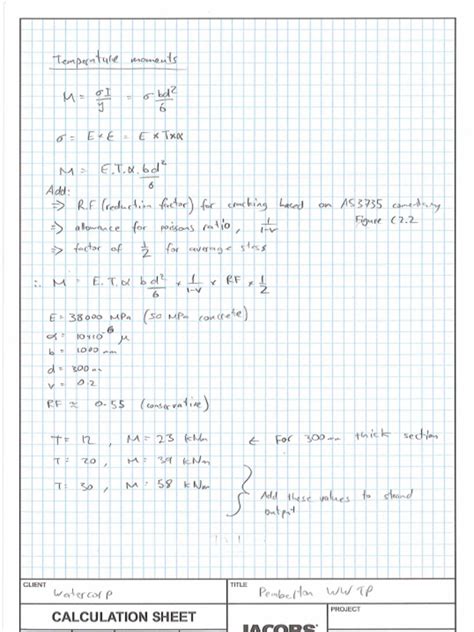 Temperature moments
M = σI/y = σ bd²/6
σ = E × ε = E × T×α
M = E.T.α. bd²/6
Add:
⇒ R.F (reduction factor) for cracking based on AS3735 commentary
Figure C2.2
⇒ allowance for poisons ratio, 1/1-v
⇒ factor of 1/2 for average stess
∴ M = E.T.α bd²/6 × 1/1-v × RF × 1/2
E = 38000 MPa (50 MPa concrete)
α = 10×10⁻⁶ μ
b = 1000 mm
d = 300 mm
v = 0.2
RF ≈ 0.55 (conservative)
T = 12 , M = 23 kNm ← For 300mm thick section
T = 20 , M = 39 kNm
T = 30 , M = 58 kNm
Add these values to strand
output
CLIENT
Watercorp
TITLE
Pemberton WWTP
CALCULATION SHEET
PROJECT
JACOBS